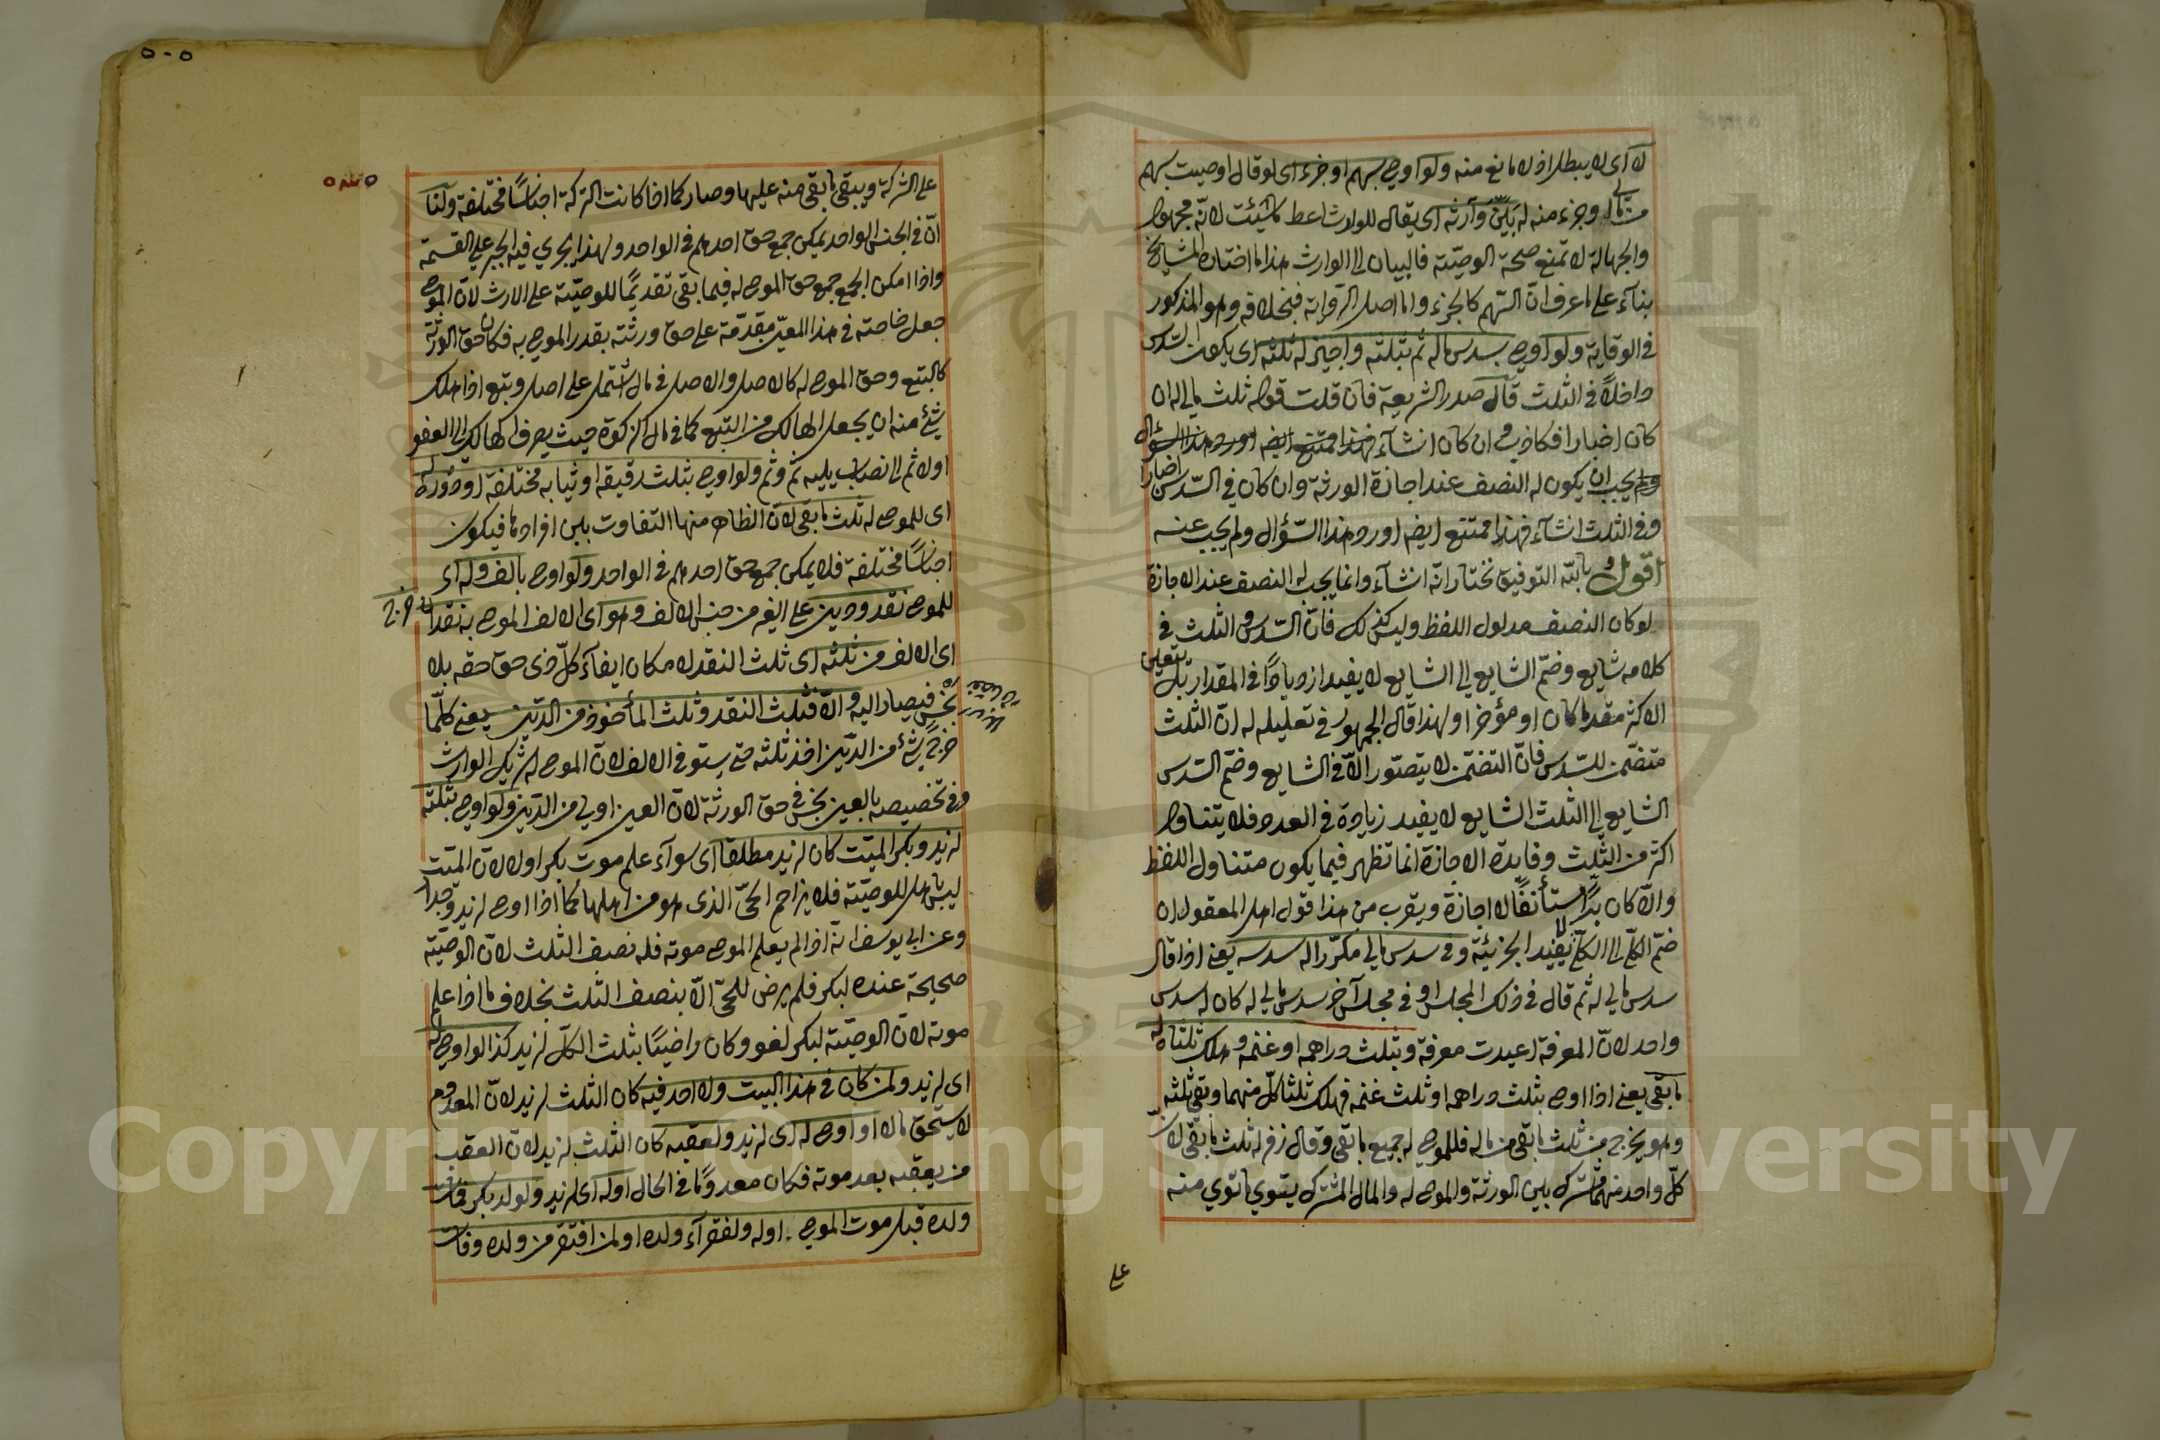 لا اى لا يبطل اذ لا مانع منه ولو اوصى بسهم او جزء اى لو قال اوصيت بسهم
من مالى او جزء منه له بيّن وارثه اى يقال للوارث اعط ما شئت لانه مجهول
والجهالة لا تمنع صحة الوصيّة فالبيان الى الوارث هذا ما اختاره المشايخ
بنآء على ما عرف انّ السّهم كالجزء واما اصل الرواية فبخلافه وهو المذكور
فى الوقاية ولو اوصى بسدس ماله ثم بثلثه واجيز له ثلثه اى يكون السدس
داخلاً فى الثلث قال صدر الشريعة فان قلت قوله ثلث مالى له ان
كان اخبارا فكاذب وان كان انشآء فهذا ممتنع ايضا اورد هذا السؤال
ولم يجب ان يكون له النصف عند اجازة الورثة وان كان فى السّدس اخبارا
وفى الثلث انشآء فهذا ممتنع ايضا اورد هذا السّؤال ولم يجب عنه
اقول وبالله التوفيق نختار انّه انشآء وانما يجب له النصف عند الاجازة
لو كان النصف مدلول اللفظ وليس كذلك فانّ السّدس والثلث فى
كلامه شايع وضمّ الشايع الى الشايع لا يفيد ازديادًا فى المقدار بل يتعين
الاكثر مقدما كان او مؤخرا ولهذا قال الجمهور فى تعليله له انّ الثلث
متضمّن للسّدس فانّ التضمّن لا يتصوّر الّا فى الشايع وضمّ السّدس
الشايع الى الثلث الشايع لا يفيد زيادة فى العدد فلا يتناول
اكثر من الثّلث وفايدة الاجازة انما تظهر فيما يكون متناول اللفظ
والّا كان برًّا مستأنفًا لا اجازة ويقرب من هذا قول اهل المعقول ان
ضمّ الكلّى الى الكلّى لا يفيد الجزئيّة وفى سدس مالى مكرّرا له سدسه يعنى اذا قال
سدس مالى له ثم قال فى ذلك المجلس او فى مجلس آخر سدس مالى له كان له سدس
واحد لانّ المعرفة اعيدت معرفة وبثلث دراهمه او غنمه وهلك ثلثاه له
ما بقى يعنى اذا اوصى بثلث دراهمه او ثلث غنمه فهلك ثلثا كلّ منهما وبقى ثلثه
وهو يخرج من ثلث ما بقى من ماله فللموصى له جميع ما بقى وقال زفر له ثلث ما بقى لانّ
كلّ واحد منهما مشترك بين الورثة والموصى له والمال المشترك يتوى ما توى منه
على
على الشركة ويبقى ما بقى منه عليها وصار كما اذا كانت التركة اجناسًا مختلفة ولنا
انّ فى الجنس الواحد يمكن جمع حق احدهم فى الواحد ولهذا يجرى فيه الجبر على القسمة
واذا امكن الجمع جمع حق الموصى له فيما بقى تقديمًا للوصيّة على الارث لانّ الموصى
جعل حاجته فى هذا المعيّن مقدّمة على حق ورثته بقدر الموصى به فكان حق الورثة
كالتبع وحق الموصى له كالاصل والاصل فى مال اشتمل على اصل وتبع اذا هلك
شئ منه ان يجعل الهالك من التبع كما فى مال الزكوة حيث يصرف الهالك الى العفو
اولا ثم الى نصاب يليه ثم وثم ولو اوصى بثلث رقيقه او ثيابه مختلفة او دوره له
اى للموصى له ثلث ما بقى لانّ الظاهر منها التفاوت بين افرادها فيكون
اجناسًا مختلفة فلا يمكن جمع حق احدهم فى الواحد ولو اوصى بالف وله اى
للموصى نقد ودين على الغير من جنس الالف وهو اى الالف الموصى به نقدا ان خرج
اى الالف من ثلثه اى ثلث النقد لامكان ايفآء كلّ ذى حق حقه بلا
بخس فيصار اليه والّا فثلث النقد وثلث المأخوذ من الدّين يعنى كلّما
خرج شئ من الدّين اخذ ثلثه حتى يستوفى الالف لانّ الموصى له شريك الوارث
وفى تخصيصه بالعين بخس فى حق الورثة لانّ العين اولى من الدّين ولو اوصى بثلثه
لزيد وبكر الميّت كان لزيد مطلقا اى سوآء علم موت بكر اولا لانّ الميّت
ليس باهل للوصيّة فلا يزاحم الحىّ الذى هو من اهلها كما اذا اوصى لزيد وجدار
وعن ابى يوسف انه اذا لم يعلم الموصى موته فله نصف الثلث لانّ الوصيّة
صحيحة عنده لبكر فلم يرض للحىّ الّا بنصف الثلث بخلاف ما اذا علم
موته لانّ الوصيّة لبكر لغو وكان راضيًا بثلث الكلّ لزيد كذا لو اوصى له
اى لزيد ولمن كان فى هذا البيت ولا احد فيه كان الثلث لزيد لانّ المعدوم
لا يستحق مالا او اوصى له اى لزيد ولعقبه كان الثلث لزيد لانّ العقب
من يعقبه بعد موته فكان معدومًا فى الحال او له اى لزيد ولولد بكر فمات
ولده قبل موت الموصى او له ولفقرآء ولده او لمن افتقر من ولده وفات